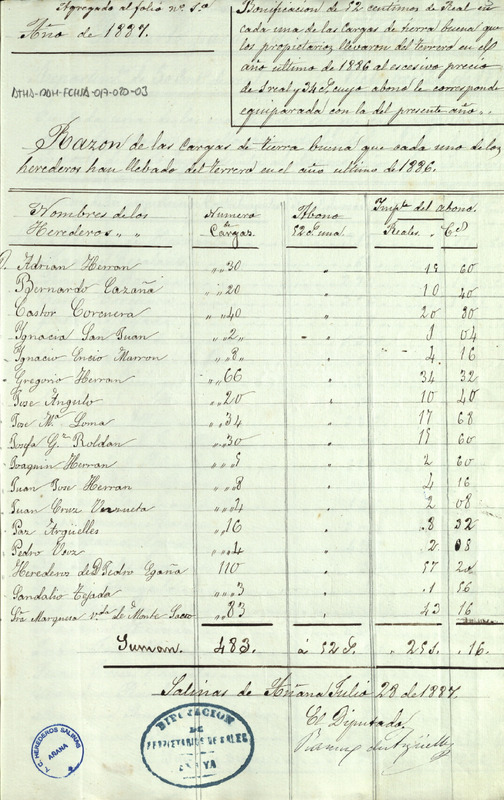 Agregado al folio nº 5.º
Año de 1887.
ATHA-DAH-FCHSA-017-020-03
Bonificacion de 52 centimos de Real en
cada una de las Cargas de tierra buena que
los propietarios llevaron del terrero en el
año ultimo de 1886 al escesivo precio
de 1 real y 34 cs. cuyo abono le corresponde
equiparada con la del presente año.
Razon de las Cargas de tierra buena que cada uno de los
herederos han llebado del terrero en el año ultimo de 1886.
Nombres de los Herederos Numero de Cargas Abono 52 cs. una Impte. del abono. Reales. Cs.
D. Adrian Herran 30 15 60
Bernardo Cazaña 20 10 40
Castor Corcuera 40 20 80
Ignacia San Juan 2 1 04
Ignacio Encio Marron 8 4 16
Gregorio Herran 66 34 32
Jose Angulo 20 10 40
Jose Mª Loma 34 17 68
Josefa G.ª Roldan 30 15 60
Joaquin Herran 5 2 60
Juan Jose Herran 8 4 16
Juan Cruz 4 2 08
Paz Argüelles 16 8 32
Pedro 4 2 08
Herederos de D. Pedro Egaña 110 57 20
Sandalio Tejada 3 1 56
Sra Marquesa v.da de Monte Sacro 83 43 16
Suman. 483. á 52 cs. 251. 16.
Salinas de Añana Julio 28 de 1887.
El Diputado.
Argüelles
DIPUTACION DE PROPIETARIOS DE SALES AÑAYA
T. C. HEREDEROS SALINAS AÑANA